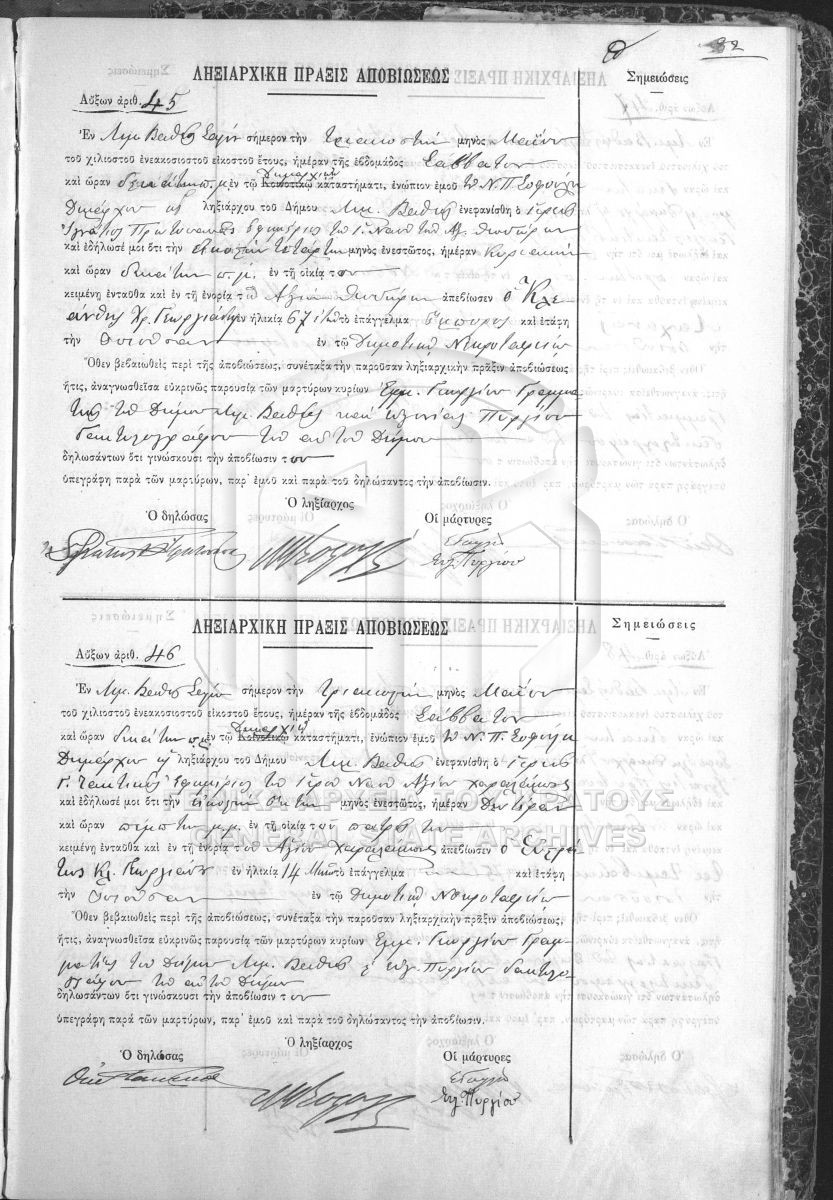 82
ΛΗΞΙΑΡΧΙΚΗ ΠΡΑΞΙΣ ΑΠΟΒΙΩΣΕΩΣ
Σημειώσεις
Αὔξων ἀριθ. 45
Ἐν Λιμ. Βαθέος Σάμου σήμερον τὴν τριακοστὴν μηνὸς Μαΐου
τοῦ χιλιοστοῦ ἐνεακοσιοστοῦ εἰκοστοῦ ἔτους, ἡμέραν τῆς ἑβδομάδος Σάββατον
καὶ ὥραν δεκάτην π.μ. ἐν τῷ Κοινοτικῷ Δημαρχιακῷ καταστήματι, ἐνώπιον ἐμοῦ τοῦ Ν. Π. Σοφούλη
Δημάρχου ὡς ληξιάρχου τοῦ Δήμου Λιμ. Βαθέος ἐνεφανίσθη ὁ ἱερεὺς
Ἰγνάτιος ἐφημέριος τοῦ Ἱ. Ναοῦ τοῦ Ἁγ. Θεοδώρου
καὶ ἐδήλωσέ μοι ὅτι τὴν εἰκοστὴν τετάρτην μηνὸς ἐνεστῶτος, ἡμέραν Κυριακὴν
καὶ ὥραν δεκάτην π.μ. ἐν τῇ οἰκίᾳ του
κειμένῃ ἐνταῦθα καὶ ἐν τῇ ἐνορίᾳ τοῦ Ἁγίου Θεοδώρου ἀπεβίωσεν ὁ Κλε
άνθης Χρ. Γεωργιάδης ἐν ἡλικίᾳ 67 ἐτῶν τὸ ἐπάγγελμα ἔμπορος καὶ ἐτάφη
τὴν ἐν τῷ Δημοτικῷ Νεκροταφείῳ
Ὅθεν βεβαιωθεὶς περὶ τῆς ἀποβιώσεως, συνέταξα τὴν παροῦσαν ληξιαρχικὴν πρᾶξιν ἀποβιώσεως
ἥτις, ἀναγνωσθεῖσα εὐκρινῶς παρουσίᾳ τῶν μαρτύρων κυρίων Ἐμμ. Γεωργίου Γραμμα
τέως τοῦ Δήμου Λιμ. Βαθέος καὶ Εὐγενίας Πυργίου
δακτυλογράφου τοῦ αὐτοῦ Δήμου
δηλωσάντων ὅτι γινώσκουσι τὴν ἀποβίωσιν του
ὑπεγράφη παρὰ τῶν μαρτύρων, παρ' ἐμοῦ καὶ παρὰ τοῦ δηλώσαντος τὴν ἀποβίωσιν.
Ὁ δηλώσας
Ὁ ληξίαρχος
Οἱ μάρτυρες
Εὐγ. Πυργίου
ΛΗΞΙΑΡΧΙΚΗ ΠΡΑΞΙΣ ΑΠΟΒΙΩΣΕΩΣ
Σημειώσεις
Αὔξων ἀριθ. 46
Ἐν Λιμ. Βαθέος Σάμου σήμερον τὴν τριακοστὴν μηνὸς Μαΐου
τοῦ χιλιοστοῦ ἐνεακοσιοστοῦ εἰκοστοῦ ἔτους, ἡμέραν τῆς ἑβδομάδος Σάββατον
καὶ ὥραν δεκάτην π.μ. ἐν τῷ Κοινοτικῷ Δημαρχιακῷ καταστήματι, ἐνώπιον ἐμοῦ τοῦ Ν. Π. Σοφούλη
Δημάρχου ὡς ληξιάρχου τοῦ Δήμου Λιμ. Βαθέος ἐνεφανίσθη ὁ ἱερεὺς
ἐφημέριος τοῦ ἱεροῦ Ναοῦ Ἁγίου Χαραλάμπους
καὶ ἐδήλωσέ μοι ὅτι τὴν εἰκοστὴν μηνὸς ἐνεστῶτος, ἡμέραν Δευτέραν
καὶ ὥραν πέμπτην μ.μ. ἐν τῇ οἰκίᾳ τοῦ πατρός του
κειμένῃ ἐνταῦθα καὶ ἐν τῇ ἐνορίᾳ τοῦ Ἁγίου Χαραλάμπους ἀπεβίωσεν ὁ Εὐστρά
τιος Κλ. ἐν ἡλικίᾳ 14 μηνῶν τὸ ἐπάγγελμα καὶ ἐτάφη
τὴν ἐν τῷ Δημοτικῷ Νεκροταφείῳ
Ὅθεν βεβαιωθεὶς περὶ τῆς ἀποβιώσεως, συνέταξα τὴν παροῦσαν ληξιαρχικὴν πρᾶξιν ἀποβιώσεως,
ἥτις, ἀναγνωσθεῖσα εὐκρινῶς παρουσίᾳ τῶν μαρτύρων κυρίων Ἐμμ. Γεωργίου Γραμ
ματέως τοῦ Δήμου Λιμ. Βαθέος & Εὐγ. Πυργίου δακτυλο
γράφου τοῦ αὐτοῦ Δήμου
δηλωσάντων ὅτι γινώσκουσι τὴν ἀποβίωσιν του
ὑπεγράφη παρὰ τῶν μαρτύρων, παρ' ἐμοῦ καὶ παρὰ τοῦ δηλώσαντος τὴν ἀποβίωσιν.
Ὁ δηλώσας
Ὁ ληξίαρχος
Οἱ μάρτυρες
Εὐγ. Πυργίου
ΓΕΝΙΚΑ ΑΡΧΕΙΑ ΤΟΥ ΚΡΑΤΟΥΣ
GENERAL STATE ARCHIVES